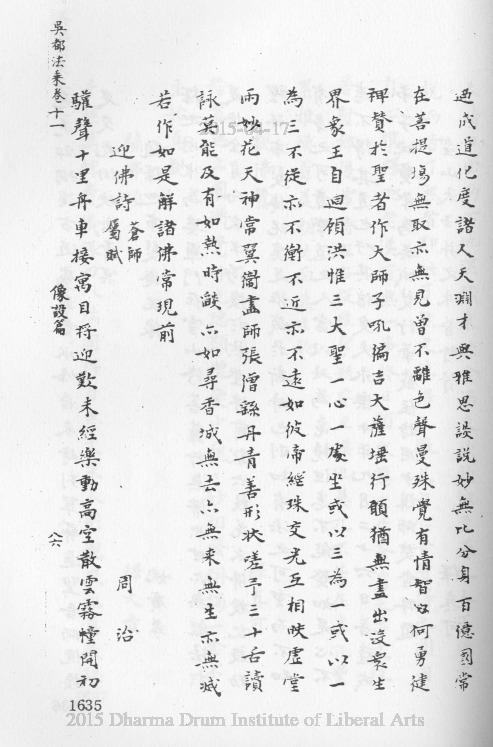 迺成道化度諸人天淵才與雅思談說妙無比分身百億國常
在菩提場無取亦無見曾不離色聲曼殊覺有情智以何勇健
裨贊於聖者作大師子吼徧吉大薩埵行願猶無盡出沒眾生
界象王自迴顧洪惟三大聖一心一處坐或以三為一或以一
為三不徒示不衡不近亦不遠如彼帝網珠交光互相映虛堂
雨妙花天神常翼衛畫師張僧繇丹青善形狀嗟乎三十舌讀
詠莫能及有如熱時燄亦如尋香城無去亦無來無生亦無滅
若作如是解諸佛常現前
迎佛詩 蒼師屬賦 周治
驩聲十里舟車接寓目將迎歎未經樂動高空散雲霧幢開初
吳都法乘卷十一 像設篇 八六
1635
2015-04-17
2015 Dharma Drum Institute of Liberal Arts